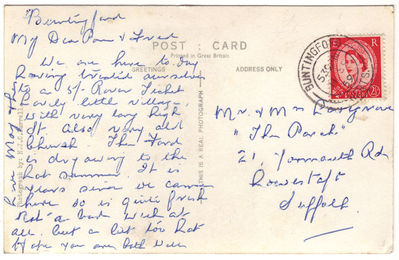 Buntingford
My Dear Pam & Fred
We are here to day
having treated ourselves
to a St. Rover Ticket
lovely little village
with very very high
It also very old
church The Ford
is dry owing to the
hot summer. It is
years since we came
here so is quite fresh
Not a bad week at
all. but a bit too hot
hope you are both well
POST CARD
Printed in Great Britain
GREETINGS
ADDRESS ONLY
THIS IS A REAL PHOTOGRAPH
BUNTINGFORD
E R
2½D
Mr. & Mrs
"The Porch"
21, Yarmouth Rd
Lowestoft
Suffolk
love May